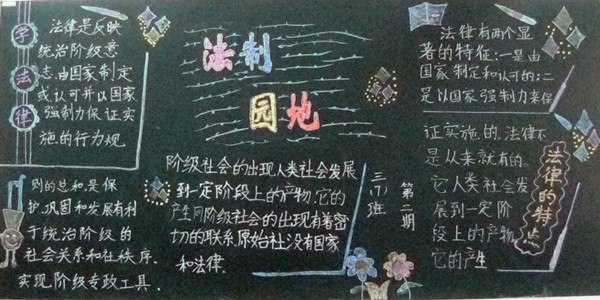 学法律
法律是反映
统治阶级意
志,由国家制定
或认可并以国家
强制力保证实
施的行力规
则的总和,是保
护、巩固和发展有利
于统治阶级的
社会关系和社秩序.
实现阶级专政工具.
法制
园地
阶级社会的出现人类社会发展
到一定阶段上的产物,它的
产生同阶级社会的出现有着密
切的联系,原始社没有国家
和法律.
三(7)班
第二期
法律有两个显
著的特征:一是由
国家制定和认可的;二
是以国家强制力来保
证实施的,法律不
是从来就有的。
它人类社会发
展到一定阶
段上的产物
它的产生
法律的特点